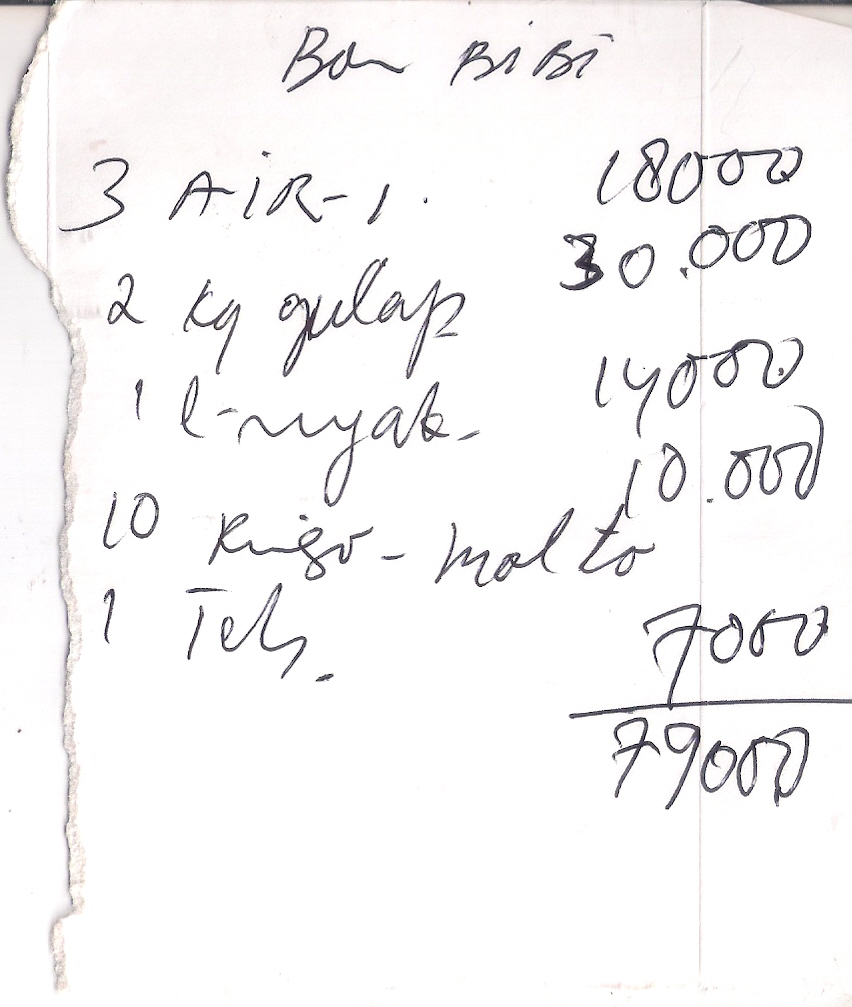 Bon BiBi
3 AiR-1. 18000
2 kg gulap 30.000
1 l-nyak- 14000
10 - molto 10.000
1 Teh. 7000
79000